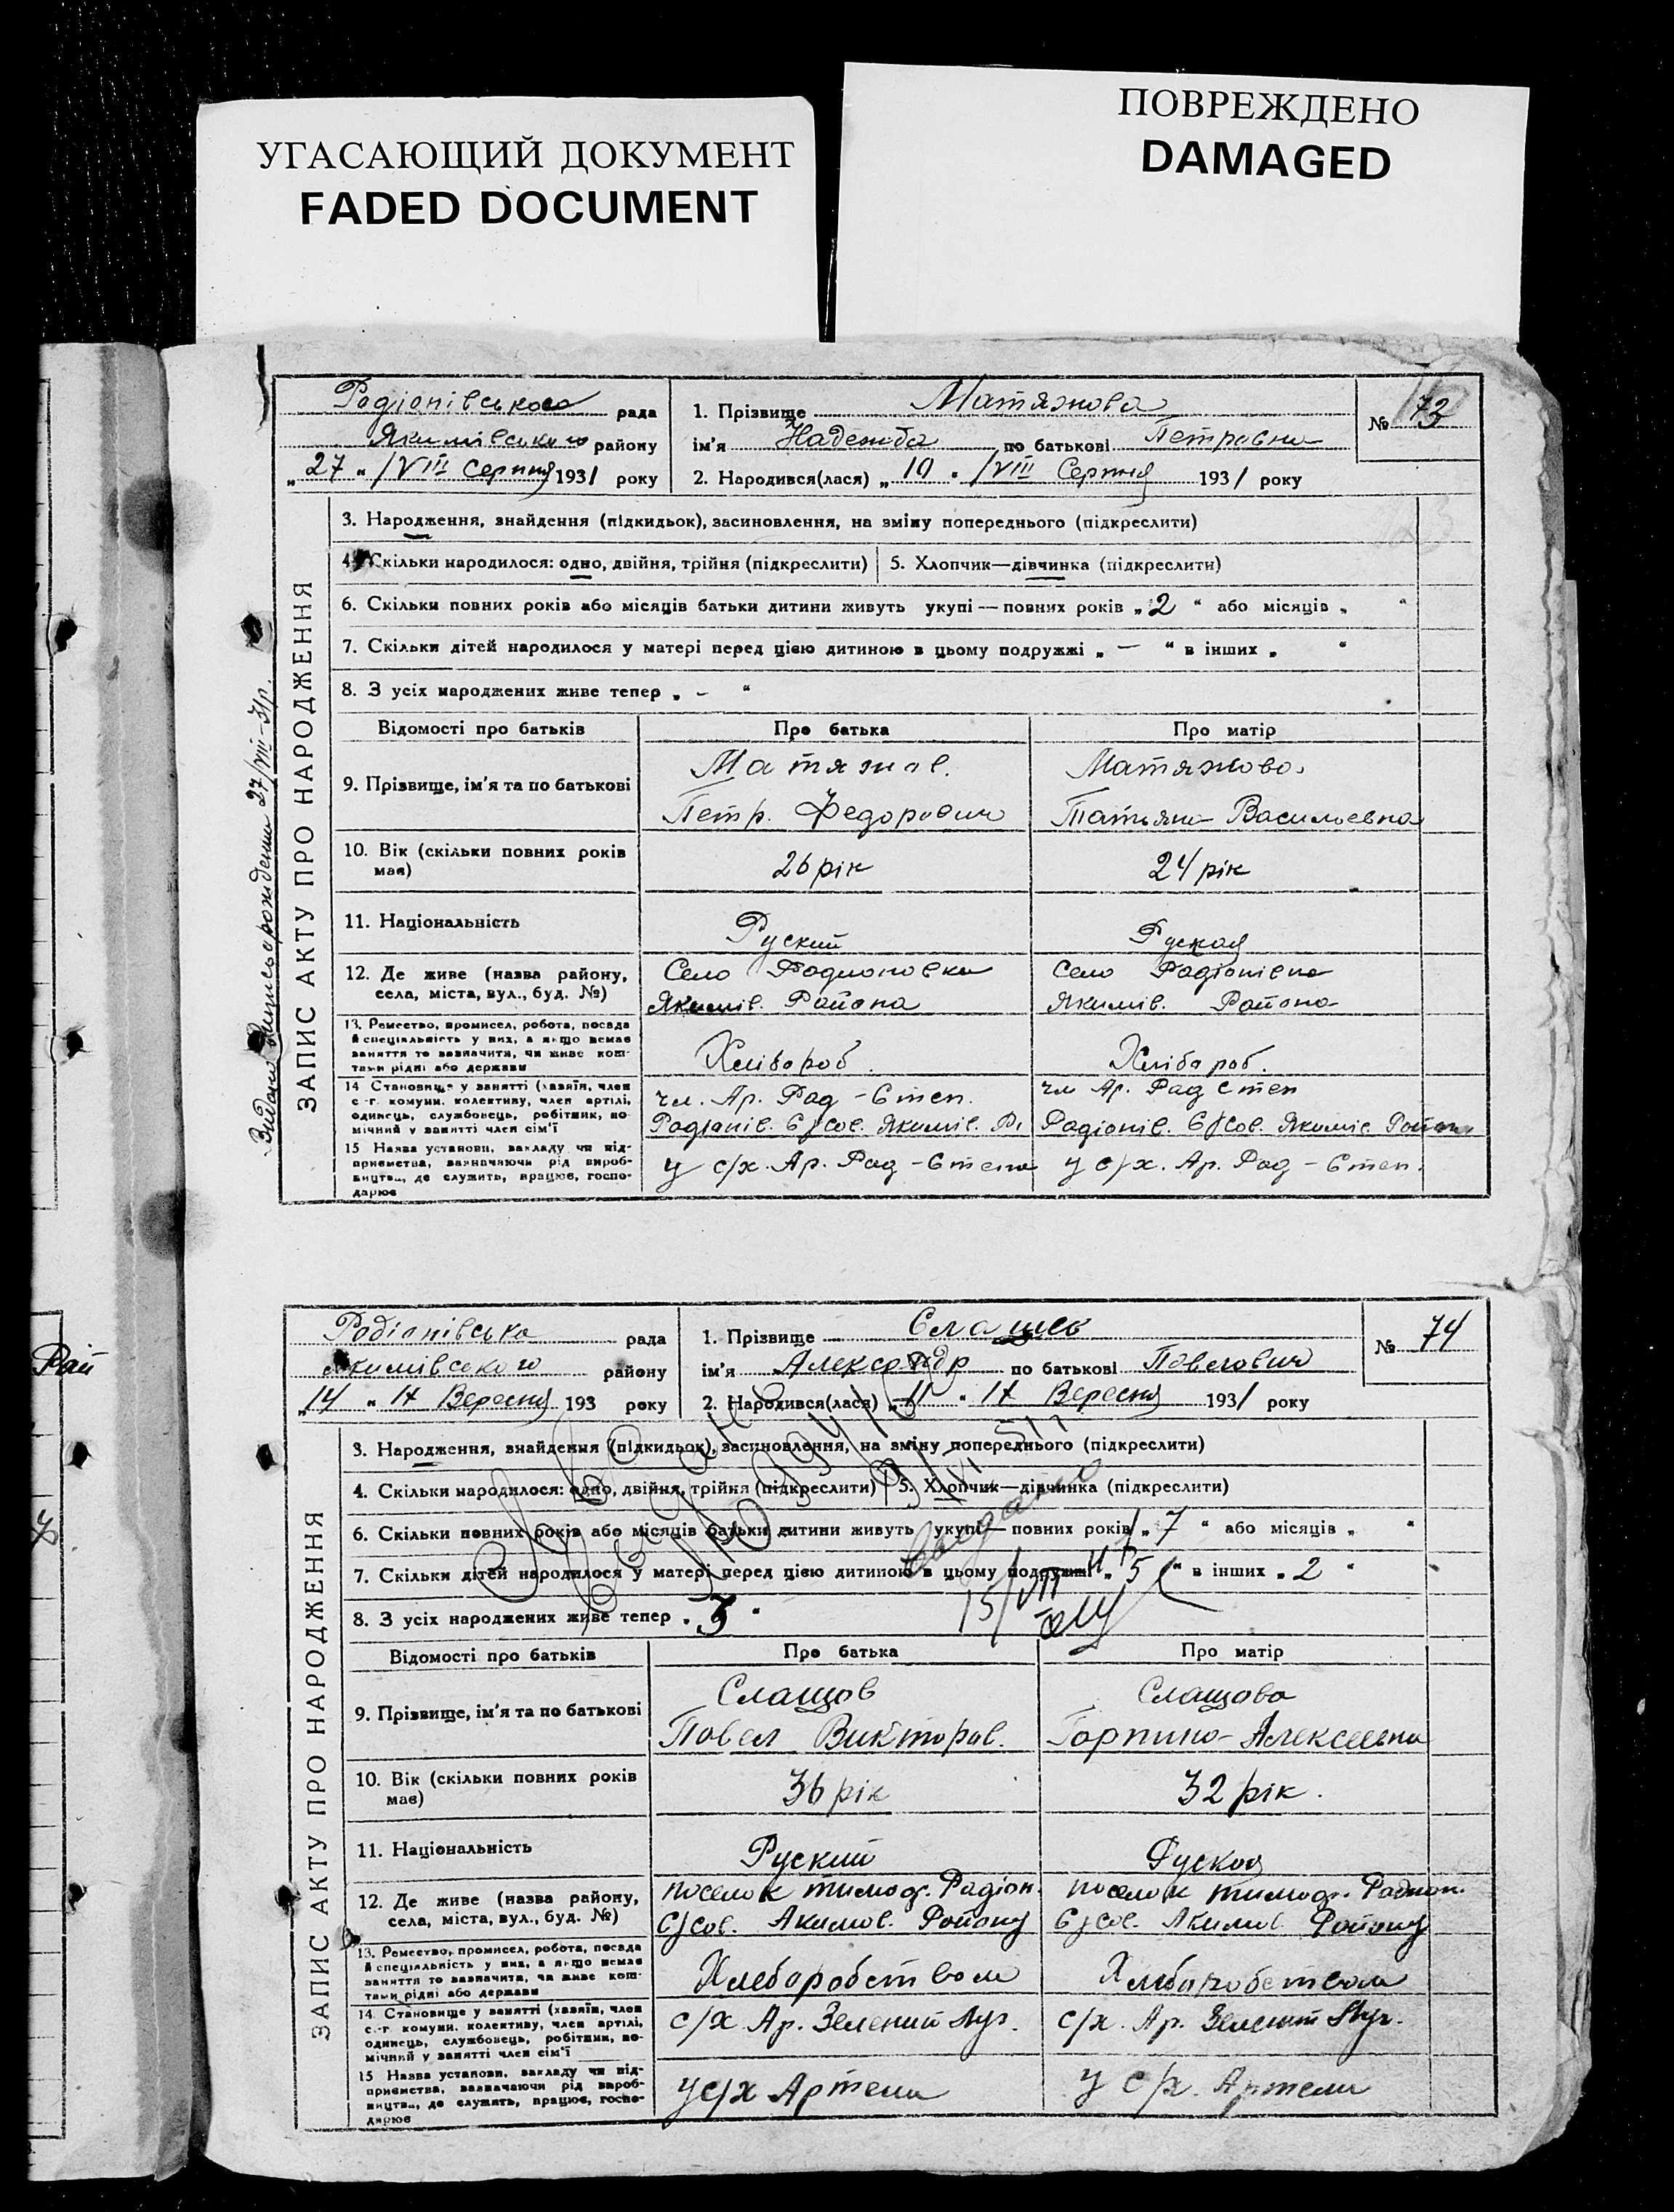 УГАСАЮЩИЙ ДОКУМЕНТ
FADED DOCUMENT
ПОВРЕЖДЕНО
DAMAGED
Родіонівського рада
Якимівського району
„27 “ /VIII Серпня 1931 року
1. Прізвище Матяжова
ім'я Надежда по батькові Петровна
2. Народився(лася) „ 10 “ /VIII Серпня 1931 року
№ 73
3. Народження, знайдення (підкидьок), засиновлення, на зміну попереднього (підкреслити)
4. Скільки народилося: одно, двійня, трійня (підкреслити) 5. Хлопчик—дівчинка (підкреслити)
6. Скільки повних років або місяців батьки дитини живуть укупі — повних років „ 2 “ або місяців „ “
7. Скільки дітей народилося у матері перед цією дитиною в цьому подружжі „ — “ в інших „ “
8. З усіх народжених живе тепер „ - “
Відомості про батьків Про батька Про матір
9. Прізвище, ім'я та по батькові
Матяжов. Матяжова
Петр. Федорович Татьяна Васильевна
10. Вік (скільки повних років має) 26 рік 24 рік
11. Національність Руский Руская
12. Де живе (назва району, села, міста, вул., буд. №)
Село Родионовка Село Радіонівна
Якимів. Района Якимів. Района
13. Ремество, промисел, робота, посада й спеціяльність у них, а якщо немає заняття то зазначити, чи живе коштами рідні або держави
Хлібороб. Хлібороб.
14 Становище у занятті (хазяїн, член с.-г комуни, колективу, член артілі, одинець, службовець, робітник, помічний у занятті член сім'ї
чл. Ар. Рад - Степ. чл Ар. Рад Степ
Радіонів. С/сов. Якимів. Р. Радіонів. С/сов. Якимів. Район
15 Назва установи, закладу чи підприємства, зазначаючи рід виробництва, де служить, працює, господарює
у с/х. Ар. Рад - Степ у с/х. Ар. Рад - Степ.
ЗАПИС АКТУ ПРО НАРОДЖЕННЯ
27/VIII-31р.
Родіонівська рада
Якимівського району
„14 “ IX Вересня 193 року
1. Прізвище Слащев
ім'я Александр по батькові Павлович
2. Народився(лася) „ 11 “ IX Вересня 1931 року
№ 74
3. Народження, знайдення (підкидьок), засиновлення, на зміну попереднього (підкреслити)
4. Скільки народилося: одно, двійня, трійня (підкреслити) 5. Хлопчик—дівчинка (підкреслити)
6. Скільки повних років або місяців батьки дитини живуть укупі — повних років „ 7 “ або місяців „ “
7. Скільки дітей народилося у матері перед цією дитиною в цьому подружжі „ 5 “ в інших „ 2 “
8. З усіх народжених живе тепер „ 3 “
Відомості про батьків Про батька Про матір
9. Прізвище, ім'я та по батькові
Слащов Слащова
Павел Викторов. Горпина Алексеевна
10. Вік (скільки повних років має) 36 рік 32 рік.
11. Національність Руский Руская
12. Де живе (назва району, села, міста, вул., буд. №)
поселок Радіон. поселок Радион.
С/сов. Акимов. Району С/сов. Акимов. Району
13. Ремество, промисел, робота, посада й спеціяльність у них, а якщо немає заняття то зазначити, чи живе коштами рідні або держави
Хлеборобством Хлеборобством
14. Становище у занятті (хазяїн, член с.-г комуни, колективу, член артілі, одинець, службовець, робітник, помічний у занятті член сім'ї
с/х Ар. Зелений Луг. с/х. Ар. Зелений Луг.
15 Назва установи, закладу чи підприємства, зазначаючи рід виробництва, де служить, працює, господарює
у с/х Артели у с/х. Артели
ЗАПИС АКТУ ПРО НАРОДЖЕННЯ
Рай